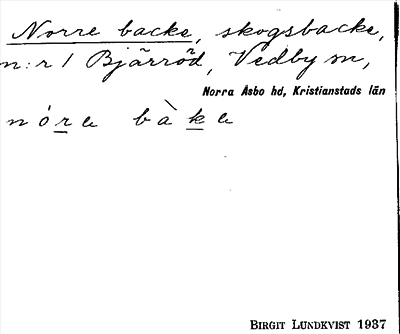 Norre backe, skogsbacke,
n:r 1 Bjärröd, Vedby sn,
Norra Åsbo hd, Kristianstads län
nóre bàke
BIRGIT LUNDKVIST 1937